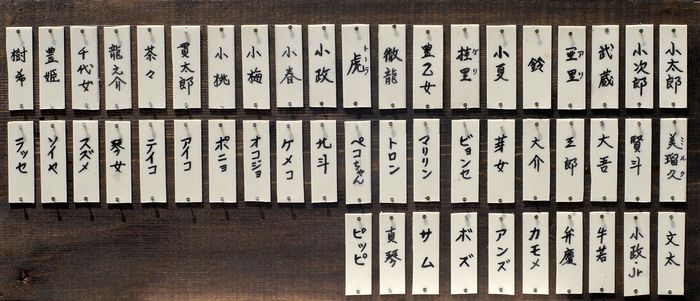 小太郎
小次郎
武蔵
亜里 アリ
鈴
小夏
桂里 ケリ
豊乙女
徹龍
虎 トーラ
小政
小春
小梅
小桃
貫太郎
茶々
龍之介
千代女
豊姫
樹希
美瑠久 ミルク
賢斗
大吾
三郎
大介
芽女
ビヨンセ
マリリン
トロン
ペコちゃん
北斗
ケメコ
オコジョ
ポニョ
アイコ
テイコ
琴女
スズメ
ソイヤ
ラッセ
文太
小政・Jr
牛若
弁慶
カモメ
アンズ
ボズ
サム
真琴
ピッピ